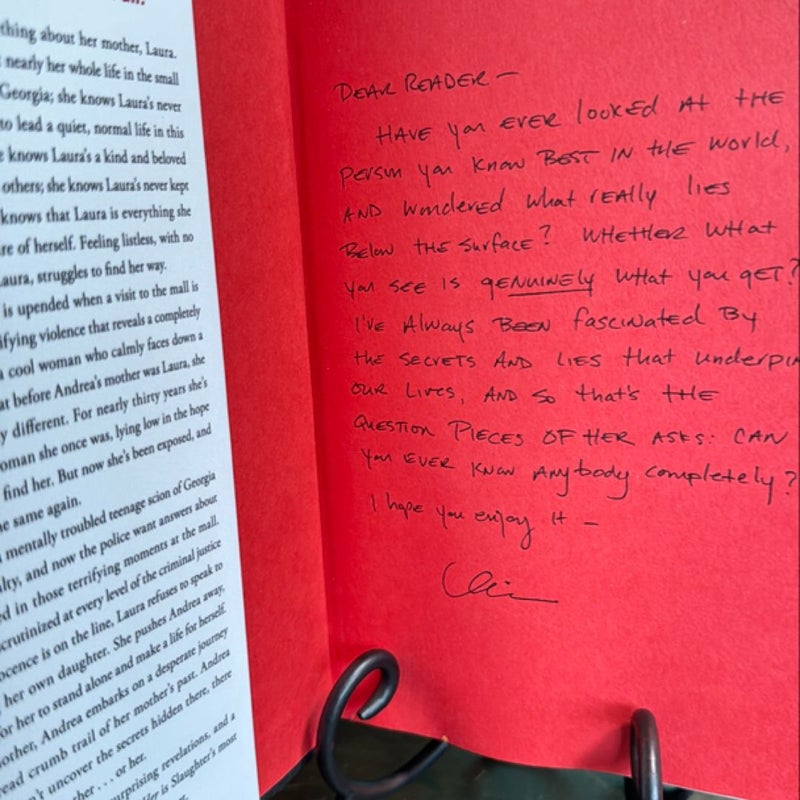 thing about her mother, Laura.
nearly her whole life in the small
Georgia; she knows Laura's never
to lead a quiet, normal life in this
knows Laura's a kind and beloved
others; she knows Laura's never kept
knows that Laura is everything she
re of herself. Feeling listless, with no
aura, struggles to find her way.
is upended when a visit to the mall is
ifying violence that reveals a completely
a cool woman who calmly faces down a
at before Andrea's mother was Laura, she
y different. For nearly thirty years she's
oman she once was, lying low in the hope
find her. But now she's been exposed, and
e same again.
mentally troubled teenage scion of Georgia
lty, and now the police want answers about
d in those terrifying moments at the mall.
crutinized at every level of the criminal justice
ocence is on the line, Laura refuses to speak to
her own daughter. She pushes Andrea away,
or her to stand alone and make a life for herself.
other, Andrea embarks on a desperate journey
read crumb trail of her mother's past. Andrea
n't uncover the secrets hidden there, there
ther . . . or her.
surprising revelations, and a
Her is Slaughter's most
DEAR READER —
HAVE you EVER looked AT the
person you know BEST IN the world,
AND wondered what really lies
Below the surface? Whether what
you see is genuinely what you get?
I've Always Been fascinated By
the secrets AND lies that underpin
our lives, AND so that's the
question Pieces of Her asks: CAN
you ever know Anybody completely?
I hope you enjoy it —